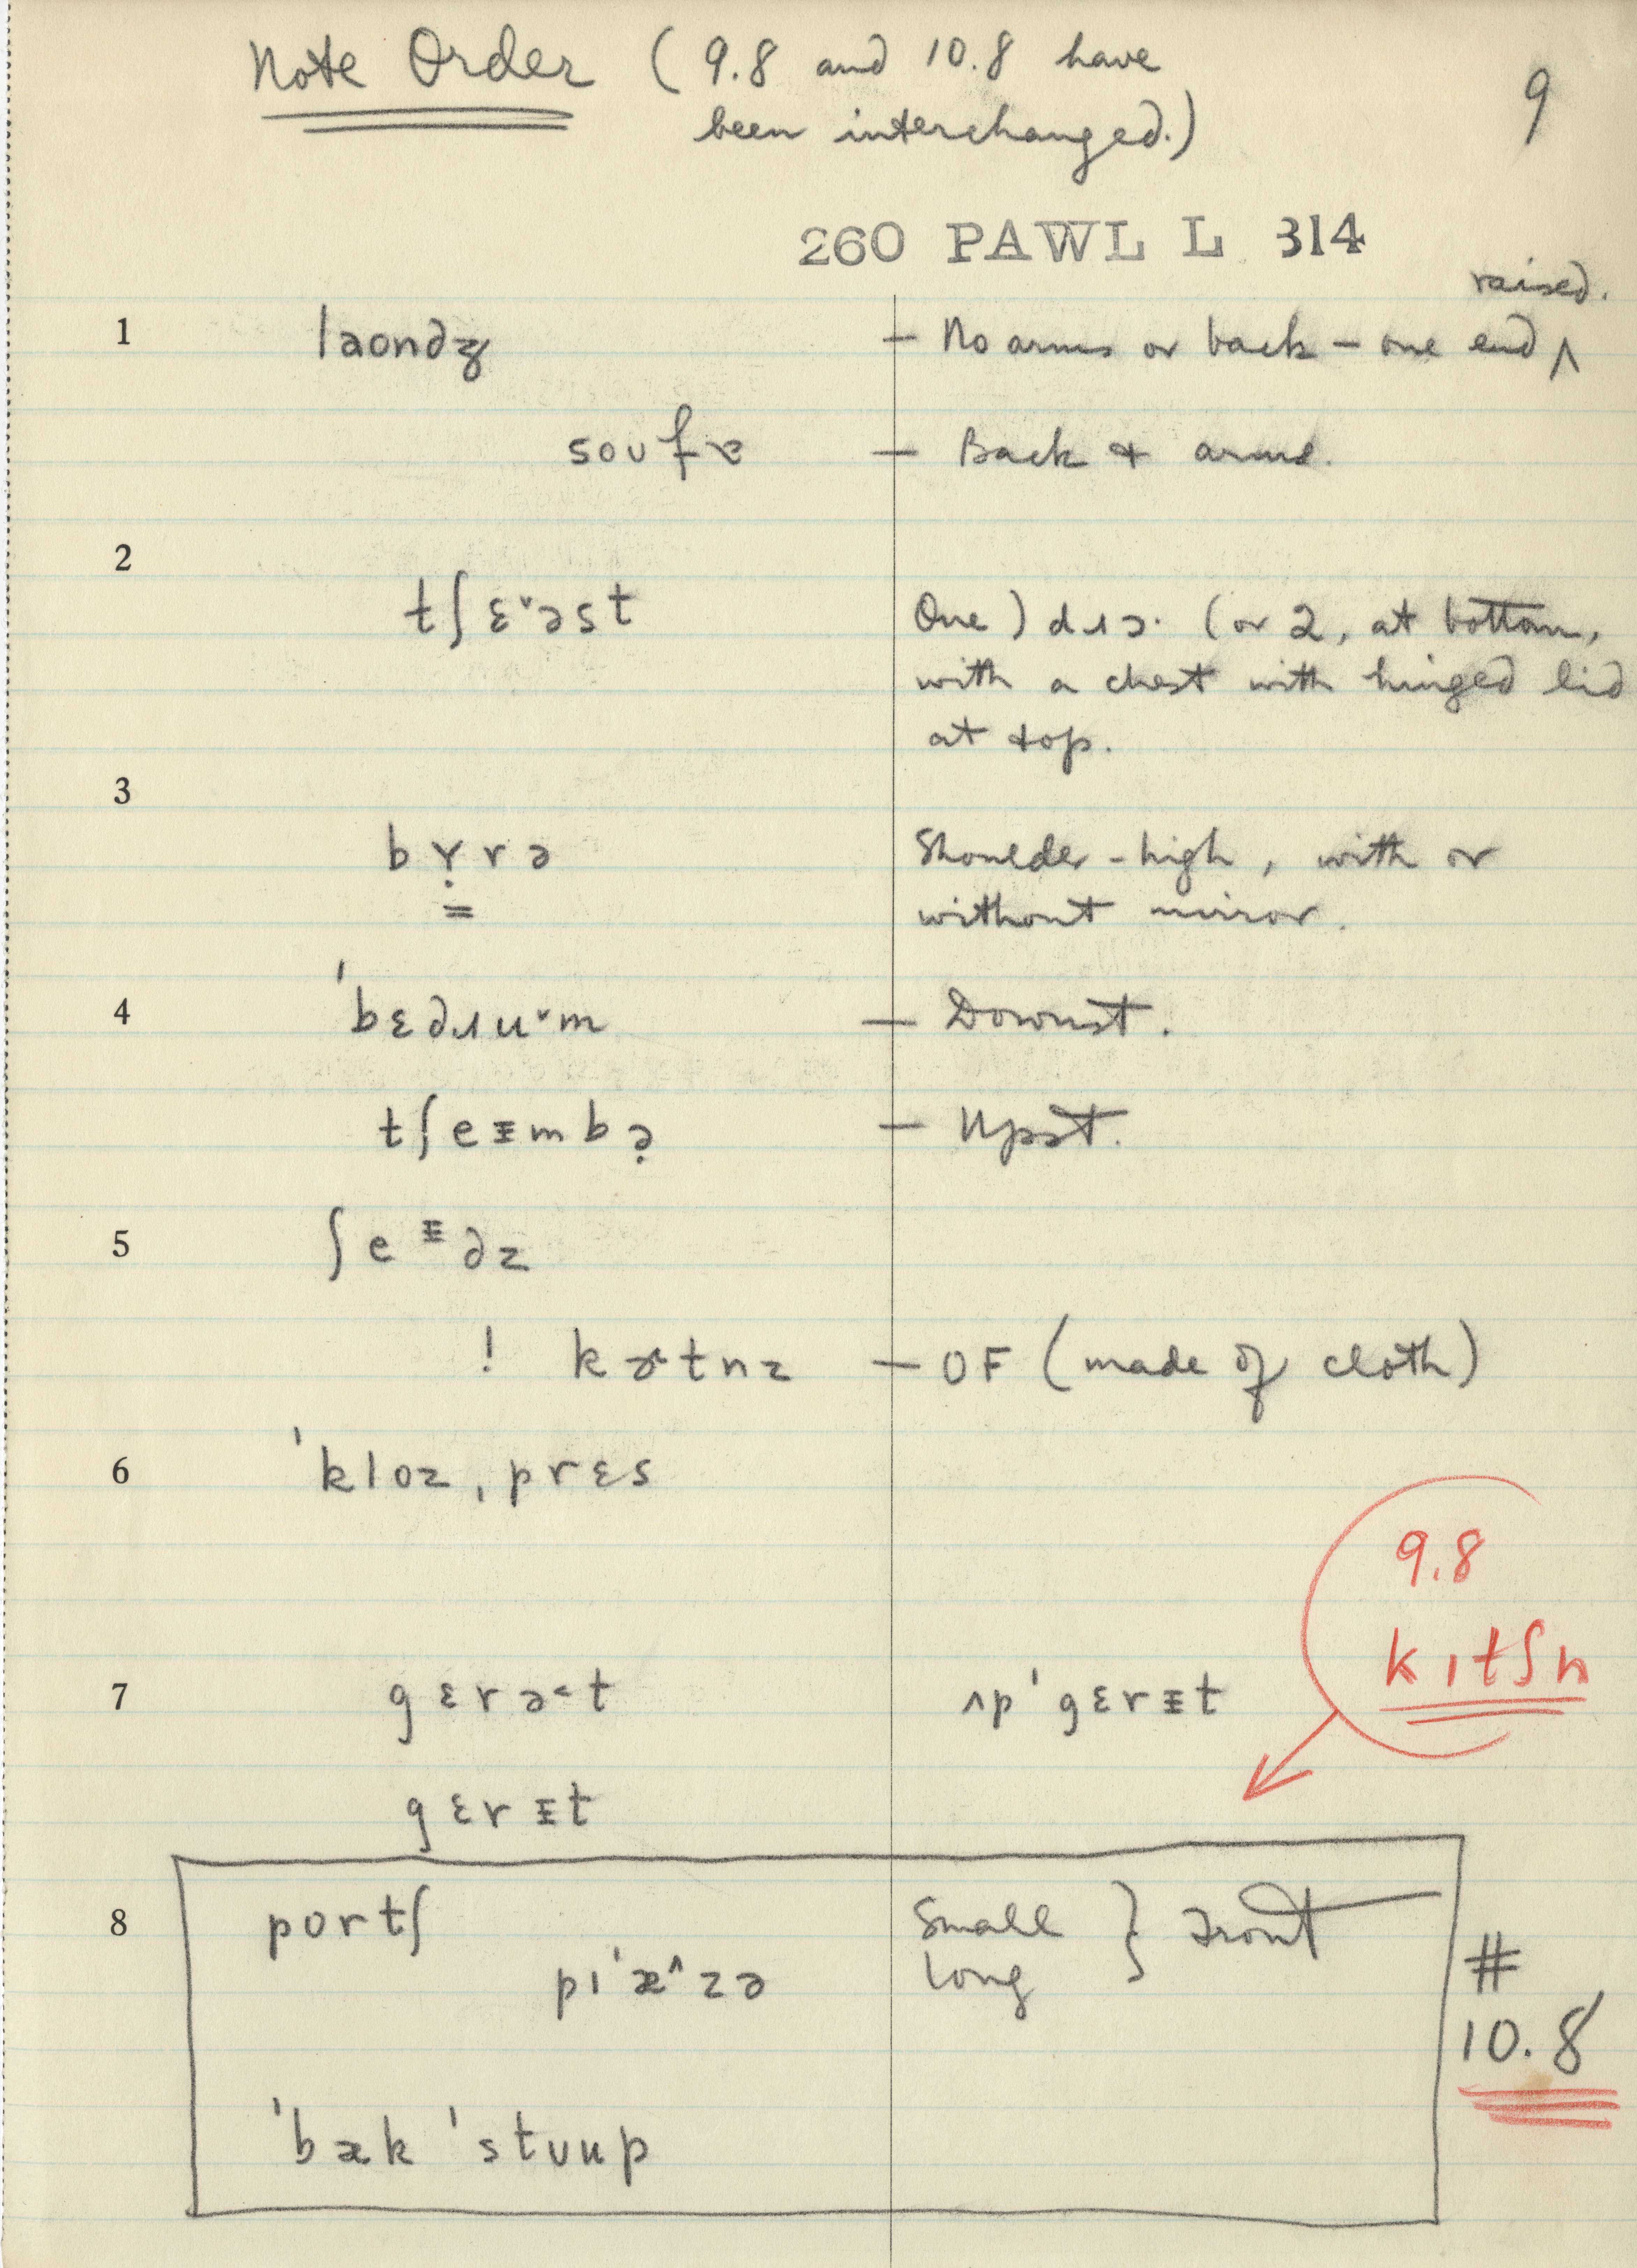 Note Order (9.8 and 10.8 have
been interchanged.)
9
260 PAWL L 314
raised.
1 laondʒ – No arms or back – one end ^
soufɐ – Back & arms.
2
tʃɛ˅əst One) dɹɔ· (or 2, at bottom,
with a chest with hinged lid
at top.
3
bʏ̣rə Shoulder-high, with or
without mirror.
4 ˈbɛdɹu˅m – Downst.
tʃeᵻmbə̣ – Upst.
5 ʃeᵻdz
! kɚtnz – OF (made of cloth)
6 ˈkloz ˌprɛs
9.8
kɪtʃn
7 gɛrə˂t ʌpˈgɛrᵻt
gɛrᵻt
8 portʃ Small } Front
pɪˈæ^zə Long
#
10.8
ˈbæk ˈstʊup